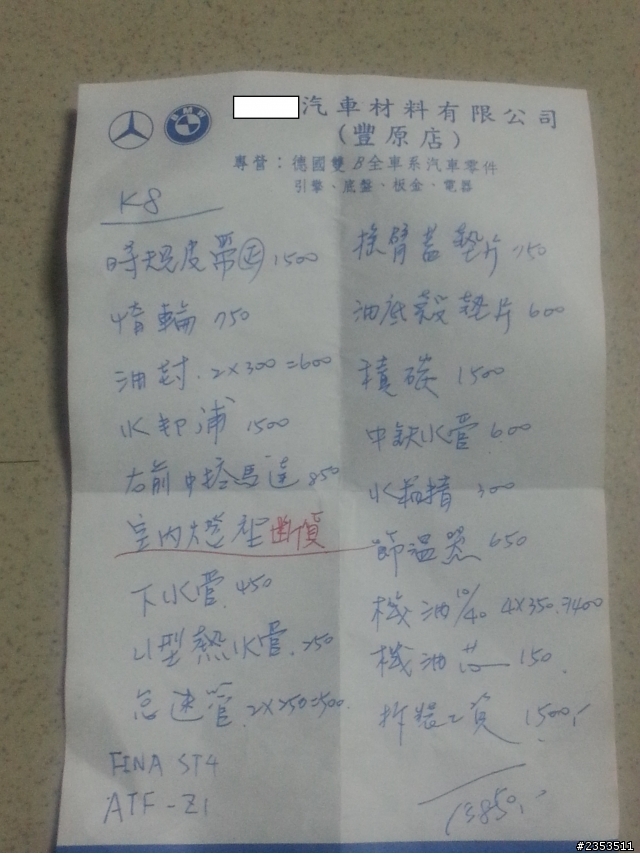 BMW
汽車材料有限公司
(豐原店)
專營：德國雙B全車系汽車零件
引擎、底盤、板金、電器
K8
時規皮帶㊣1500
惰輪 750
油封 2×300=600
水邦浦 1500
右前中控馬達 850
室內燈座 斷損
下水管 450
U型熱水管 250
怠速管 2×250=500
FINA ST4
ATF-Z1
搖臂蓋墊片 750
油底殼墊片 600
積碳 1500
中鉄水管 600
水箱精 300
節溫器 650
機油10/40 4×350
機油 150
拆裝工資 1500
13850
#2353511